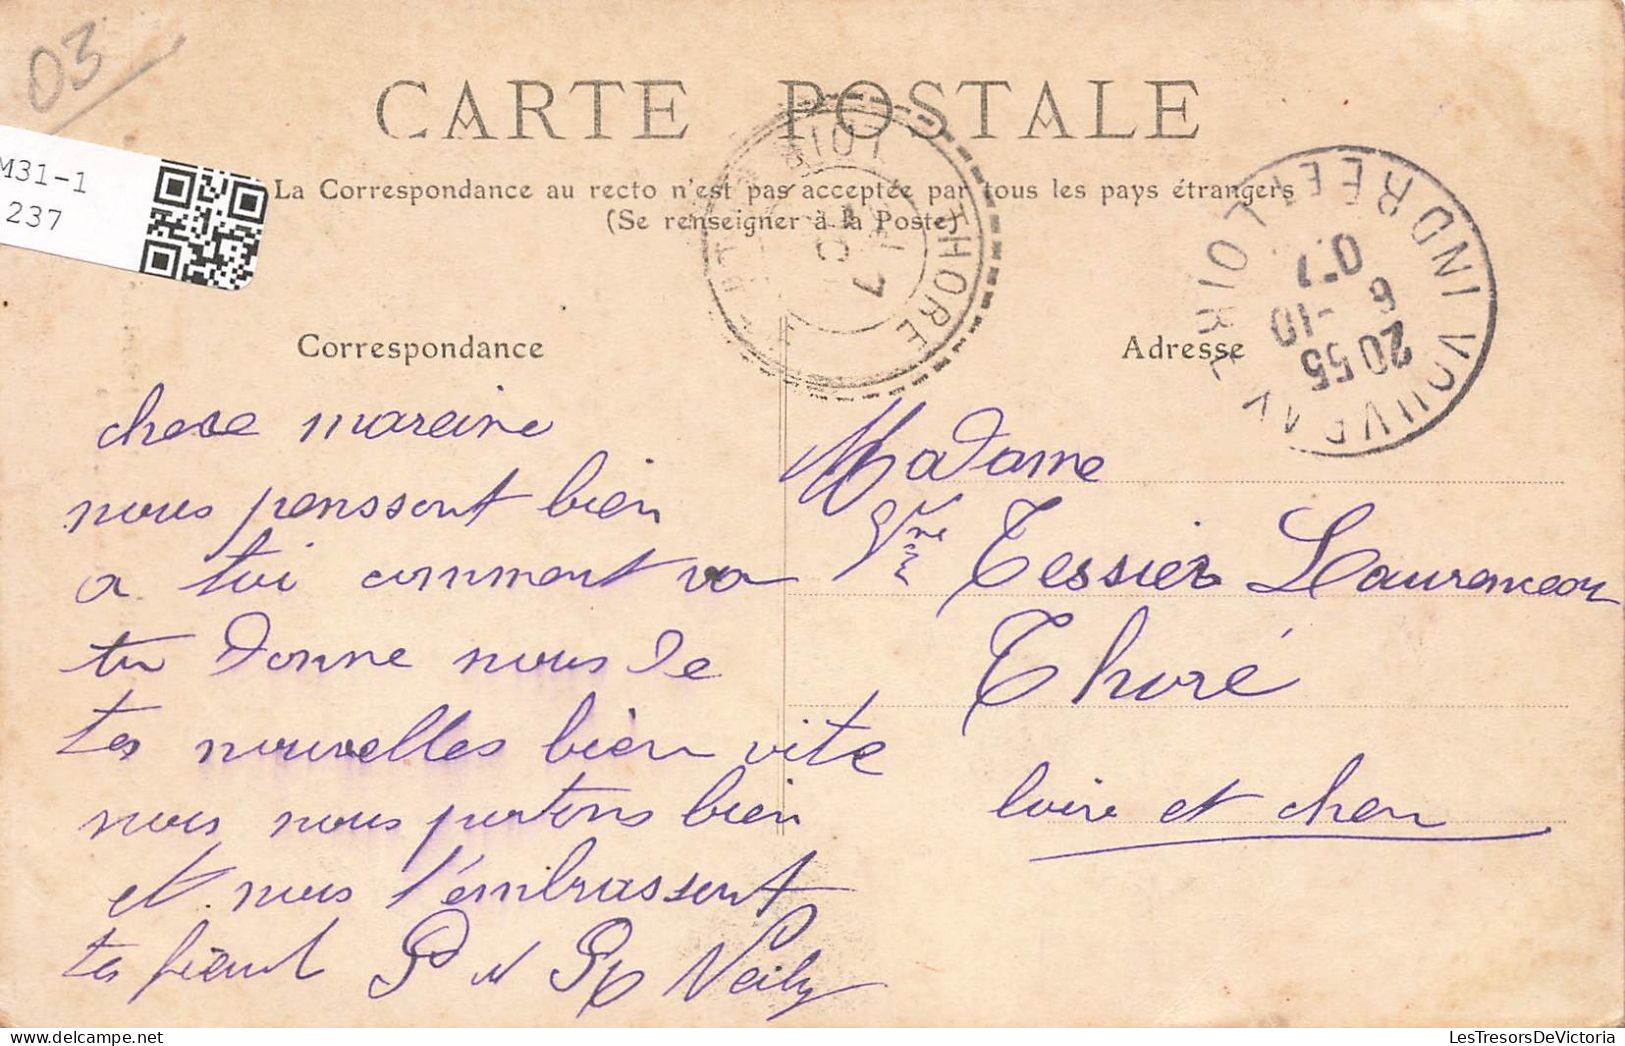 03
M31-1
237
CARTE POSTALE
La Correspondance au recto n'est pas acceptée par tous les pays étrangers
(Se renseigner à la Poste)
THORE
VOUVRAY INDRE ET LOIRE
20 55
6 -10
07
Correspondance
Adresse
chere mareine
nous penssont bien
a toi comment va
tu donne nous de
tes nouvelles bien vite
nous nous portons bien
et nous t'embrassont
tes
Madame
Vve Tessier Laurenceau
Thoré
loire et cher
LesTresorsDeVictoria